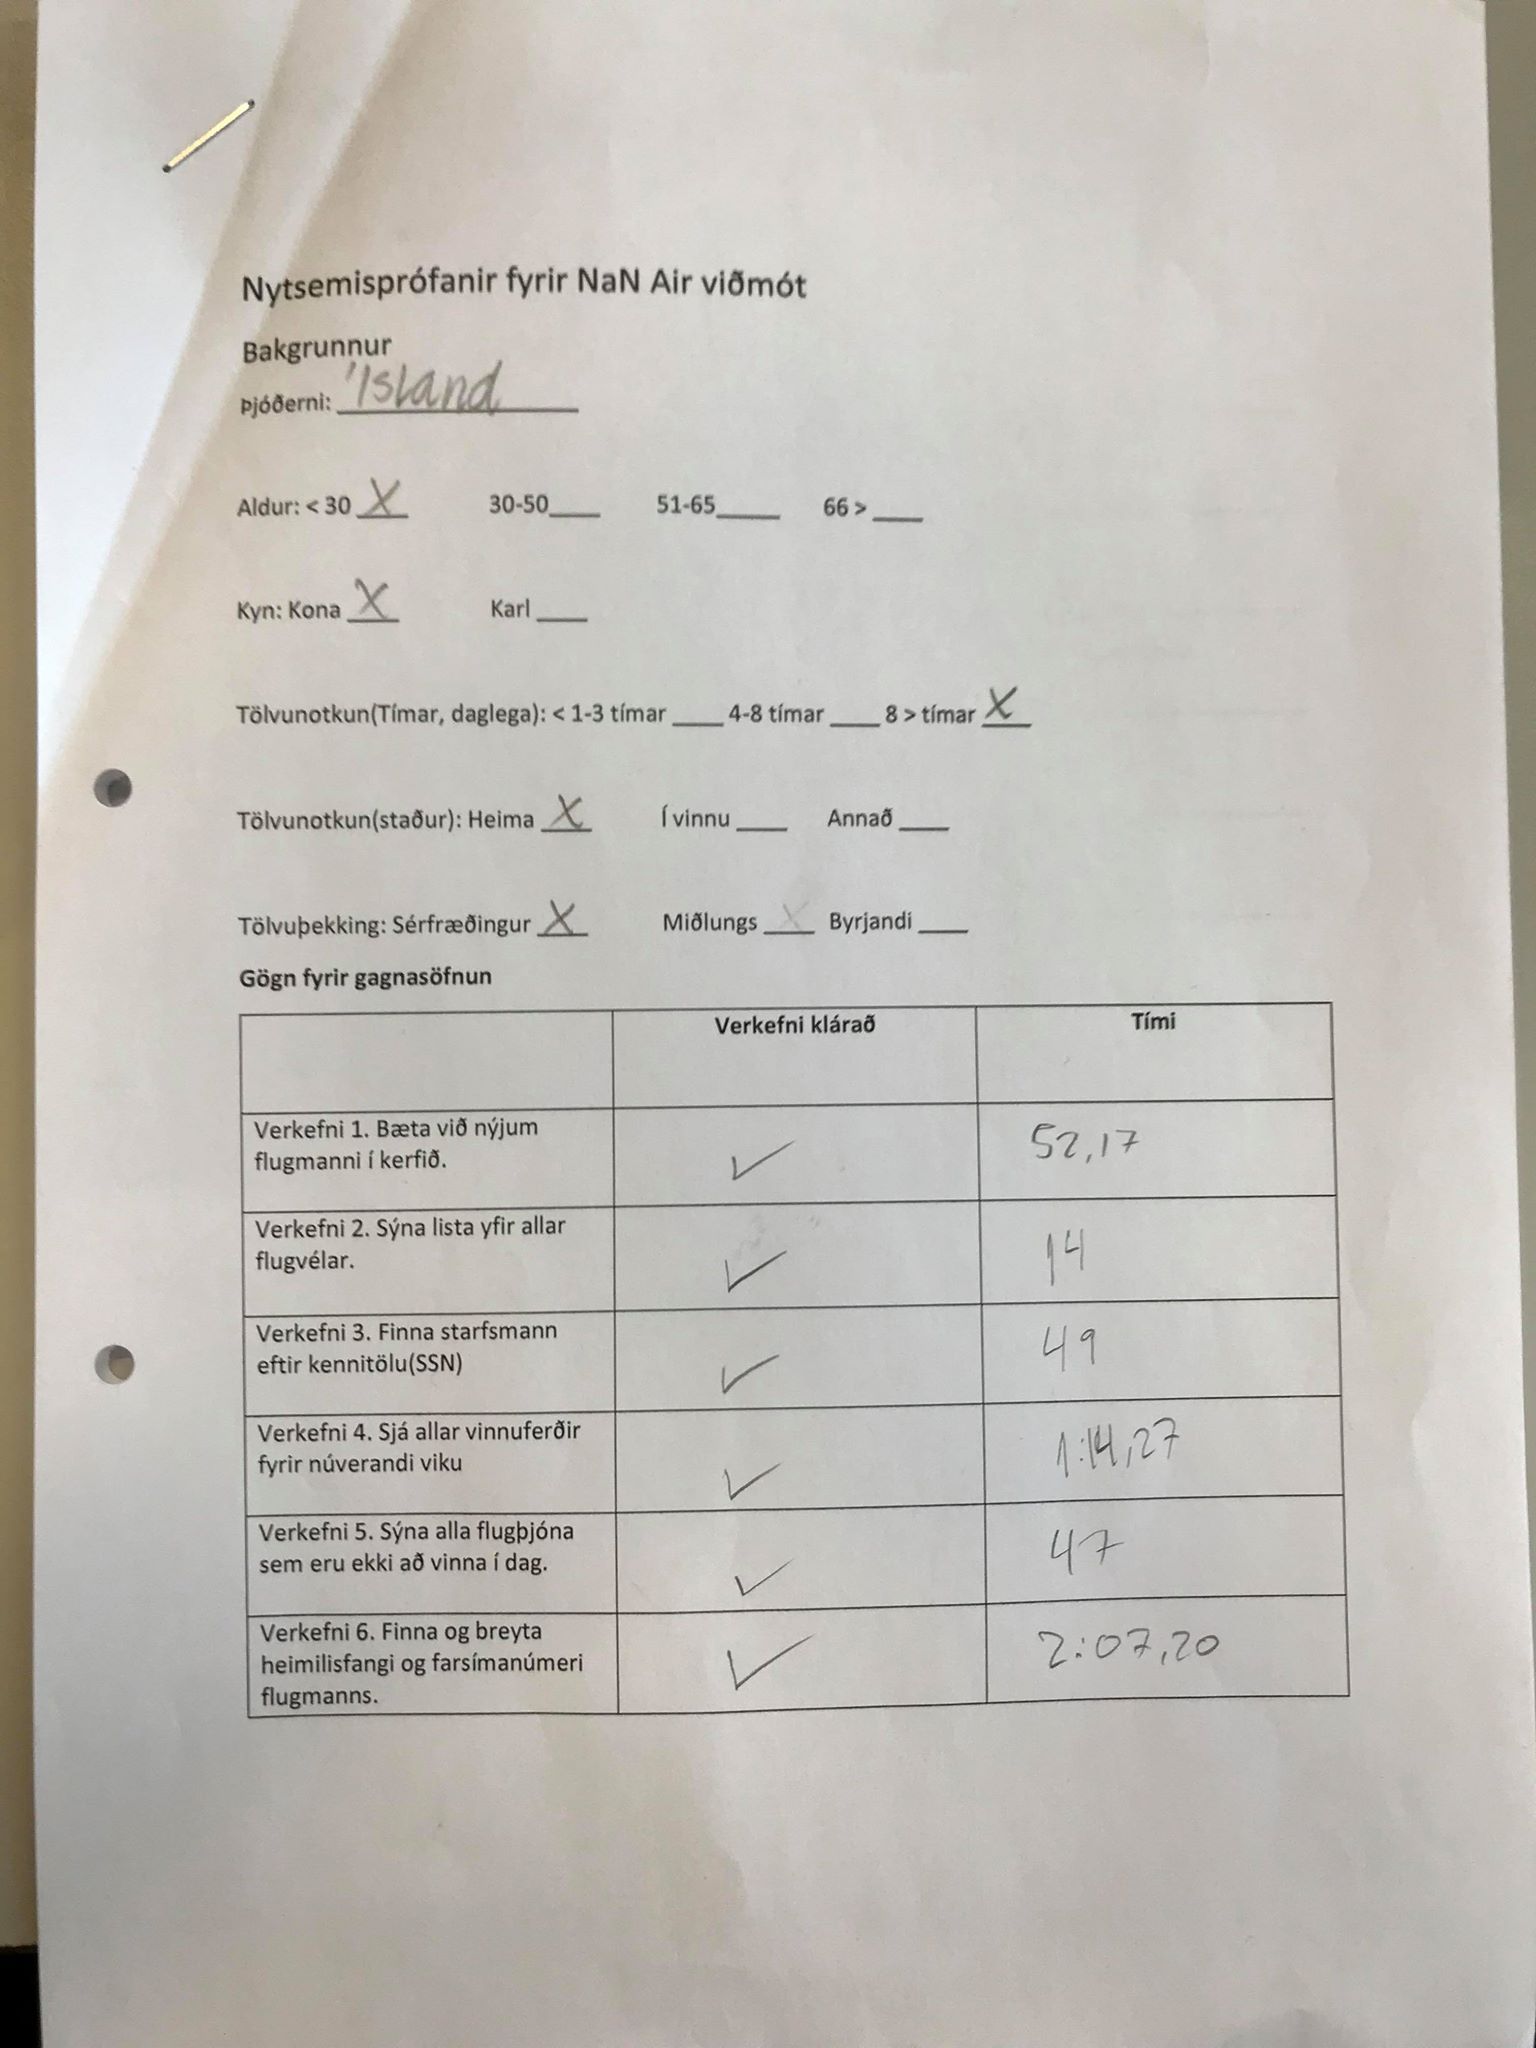 Nytsemisprófanir fyrir NaN Air viðmót
Bakgrunnur
Þjóðerni: Ísland
Aldur: < 30 X 30-50____ 51-65____ 66 > ____
Kyn: Kona X Karl ____
Tölvunotkun(Tímar, daglega): < 1-3 tímar ____ 4-8 tímar ____ 8 > tímar X
Tölvunotkun(staður): Heima X Í vinnu ____ Annað ____
Tölvuþekking: Sérfræðingur X Miðlungs X Byrjandi ____
Gögn fyrir gagnasöfnun
Verkefni klárað Tími
Verkefni 1. Bæta við nýjum
flugmanni í kerfið. ✓ 52,17
Verkefni 2. Sýna lista yfir allar
flugvélar. ✓ 14
Verkefni 3. Finna starfsmann
eftir kennitölu(SSN) ✓ 49
Verkefni 4. Sjá allar vinnuferðir
fyrir núverandi viku ✓ 1:14,27
Verkefni 5. Sýna alla flugþjóna
sem eru ekki að vinna í dag. ✓ 47
Verkefni 6. Finna og breyta
heimilisfangi og farsímanúmeri ✓ 2:07,20
flugmanns.